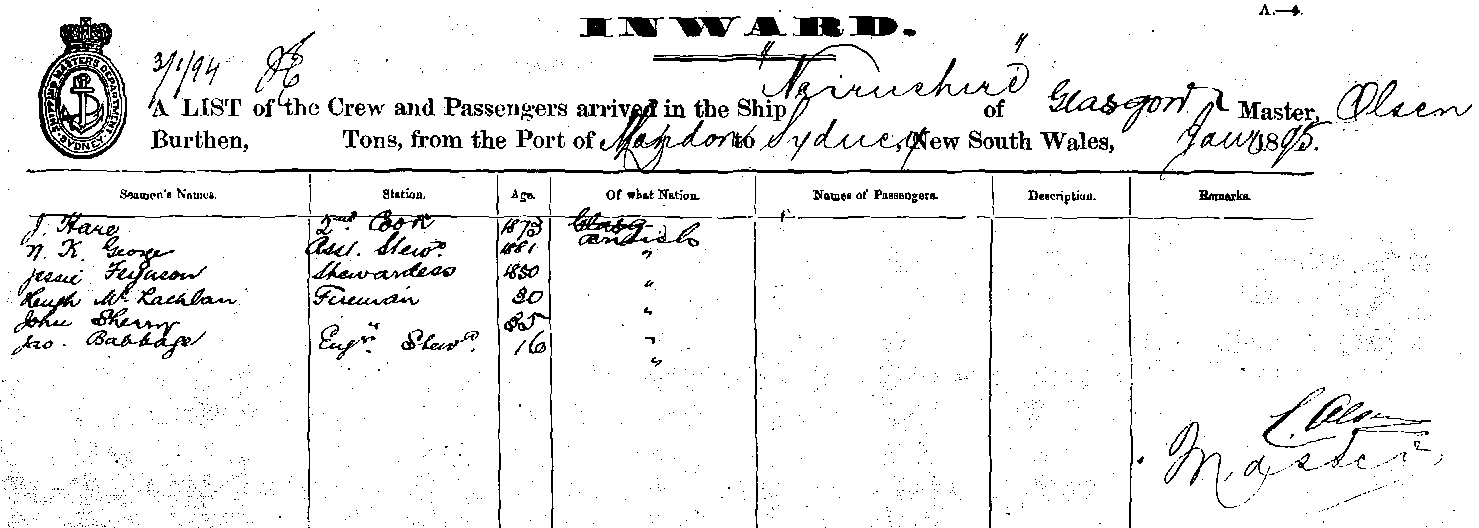 A.—4.
INWARD.
SHIPPING MASTER'S DEPARTMENT SYDNEY
3/1/94
A LIST of the Crew and Passengers arrived in the Ship "Nairnshire" of Glasgow Master, Olsen
Burthen, Tons, from the Port of to Sydney, New South Wales, Jany 1895.
Seamen's Names. Station. Age. Of what Nation. Names of Passengers. Description. Remarks.
J. Hare 2nd Cook 1873 Glasg
N. K. George Asst. Stewd. 1881 British
Jessie Ferguson Stewardess 1850 "
Hugh McLachlan Fireman 30 "
John Sherry " "
Jno. Babbage Engrs. Stewd. 16 "
"
L. Olsen
Master